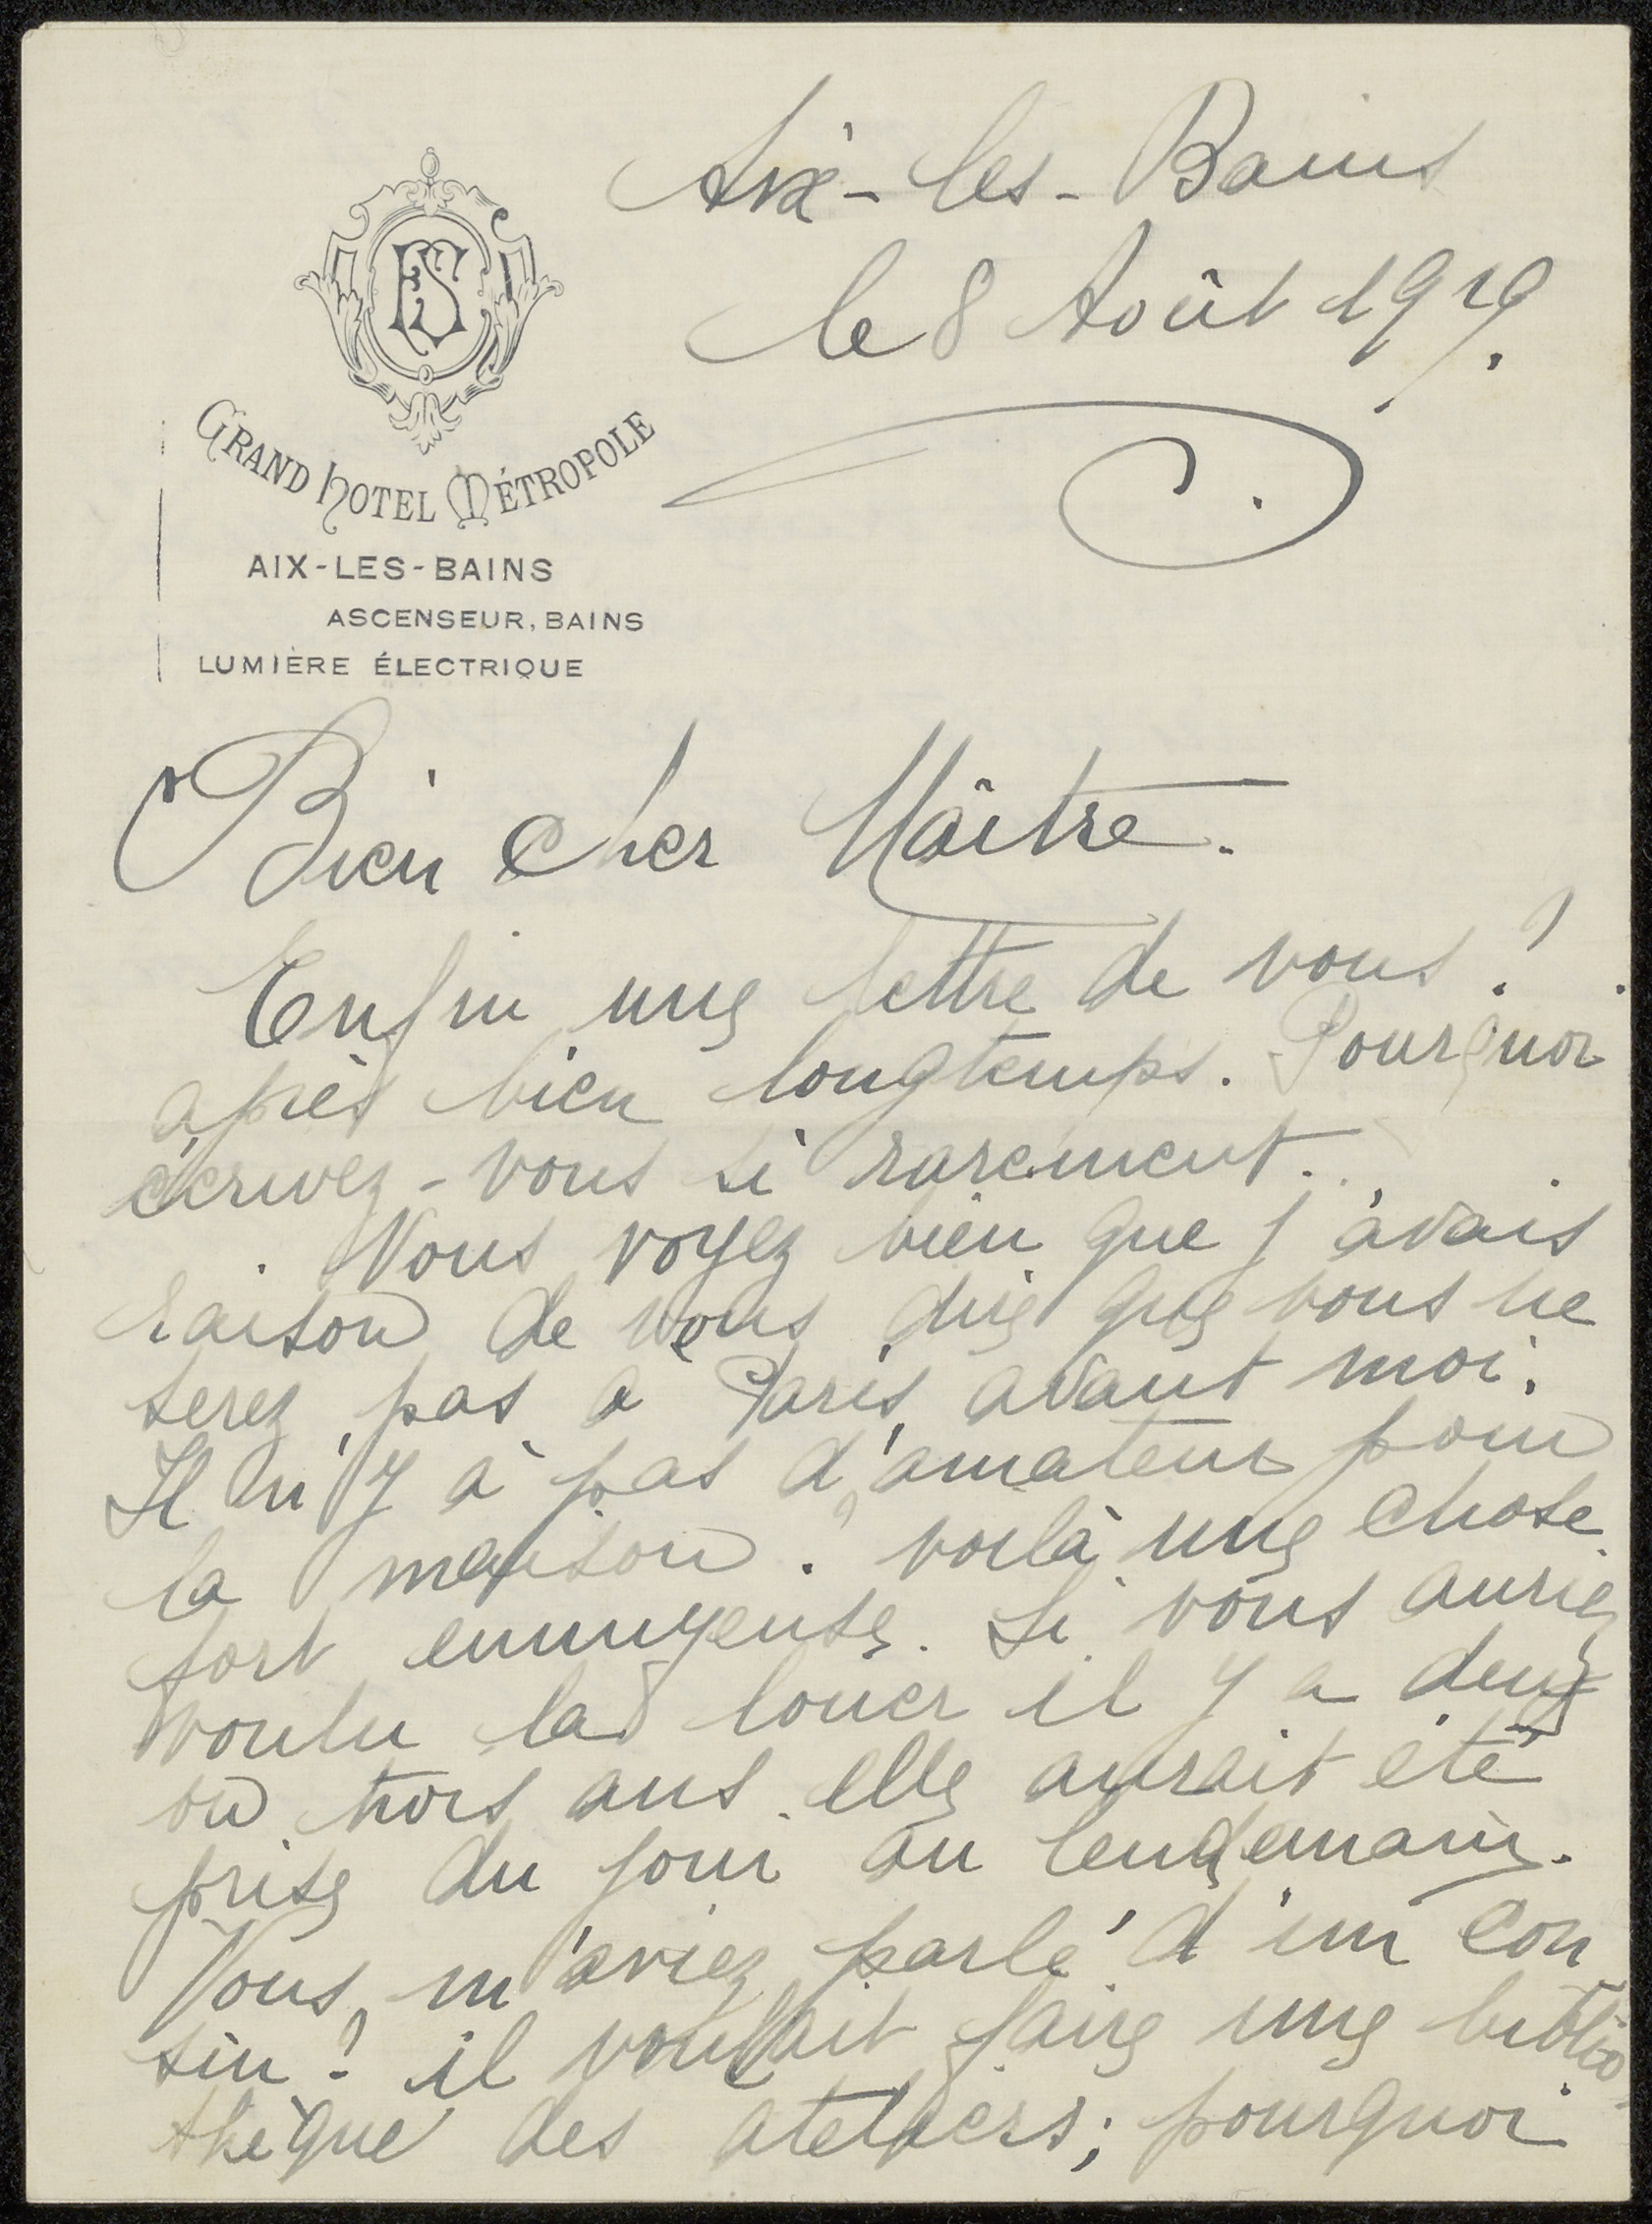 Aix-les-Bains
le 8 Août 1919.
ES
GRAND HOTEL MÉTROPOLE
AIX-LES-BAINS
ASCENSEUR, BAINS
LUMIÈRE ÉLECTRIQUE
Bien Cher Maître.
Enfin une lettre de vous!
après bien longtemps. Pourquoi
écrivez-vous si rarement.
Vous voyez bien que j'avais
raison de vous dire que vous ne
serez pas à Paris avant moi.
Il n'y à pas d'amateur pour
la maison? voilà une chose
fort ennuyeuse. Si vous auriez
voulu la louer il y a deux
ou trois ans elle aurait été
prise du jour au lendemain.
Vous m'aviez parlé d'un cou
sin? il voulait faire une biblio-
thèque des ateliers; pourquoi